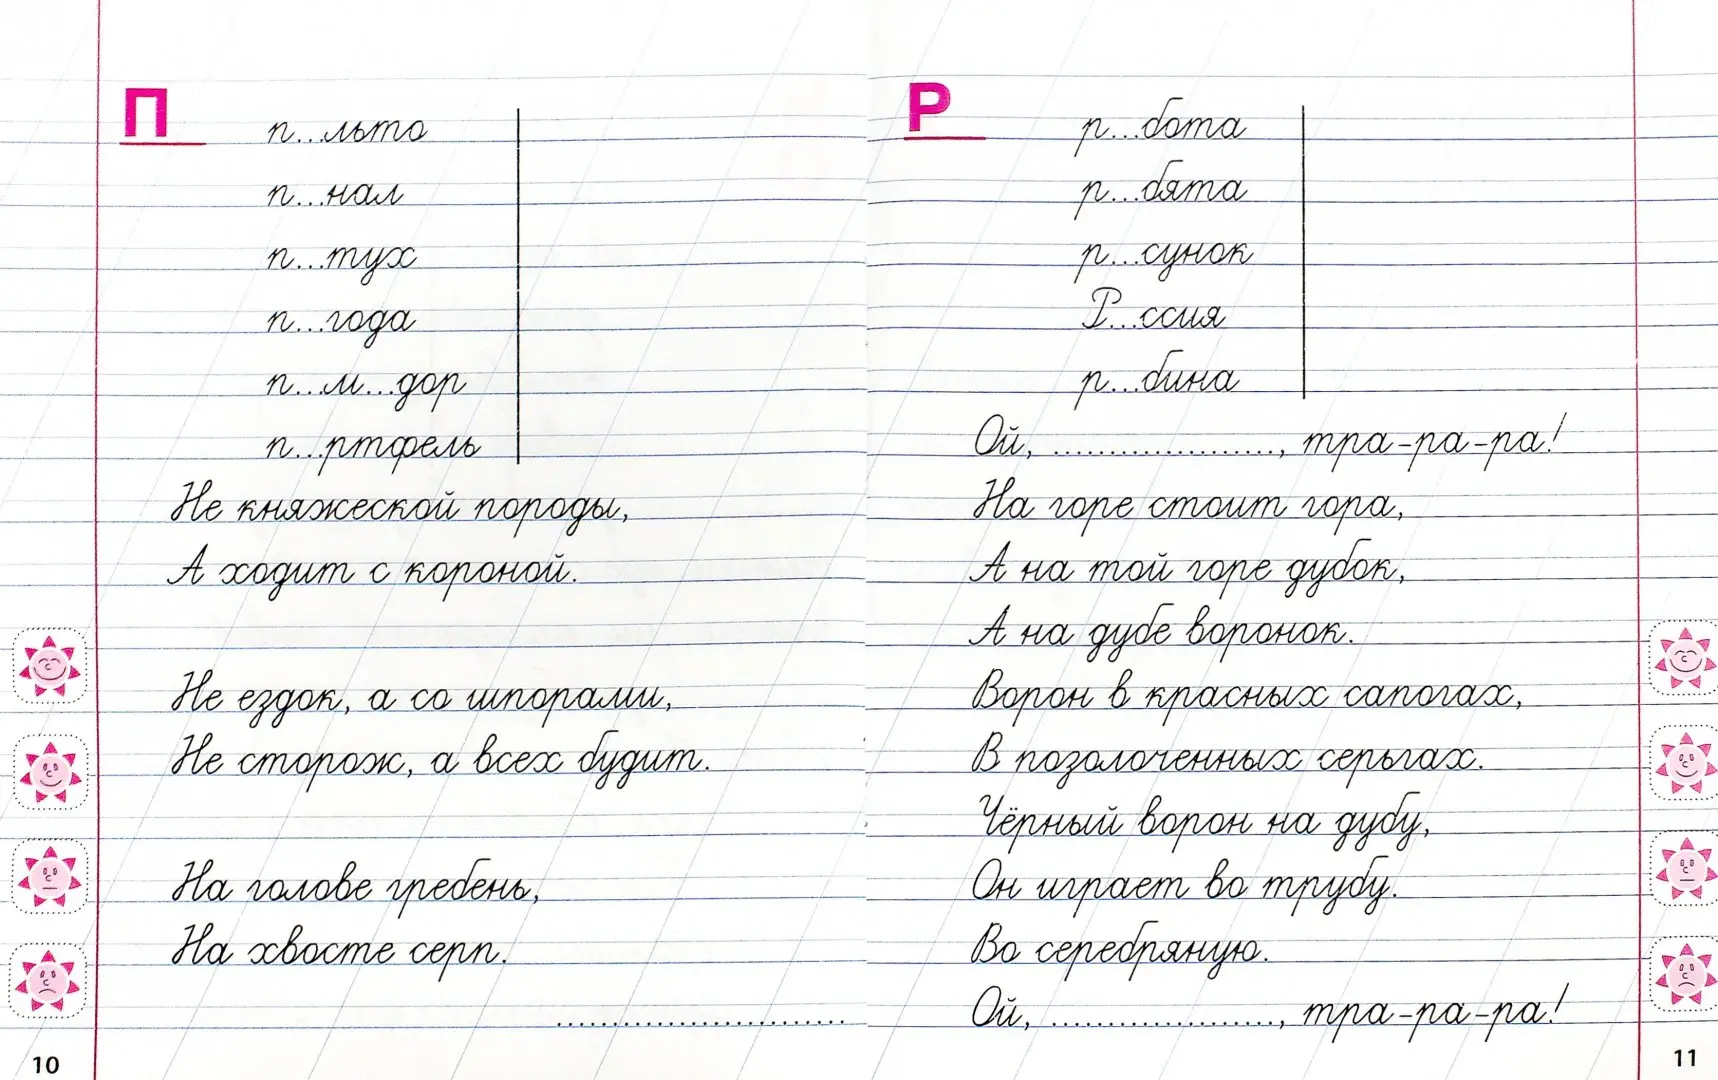 П
п...льто
п...нал
п...тух
п...года
п...м...дор
п...ртфель
Не княжеской породы,
А ходит с короной.
Не ездок, а со шпорами,
Не сторож, а всех будит.
На голове гребень,
На хвосте серп.
.............................
10
Р
р...бота
р...бята
р...сунок
Р...ссия
р...бина
Ой, ......................, тра-ра-ра!
На горе стоит гора,
А на той горе дубок,
А на дубе воронок.
Ворон в красных сапогах,
В позолоченных серьгах.
Чёрный ворон на дубу,
Он играет во трубу.
Во серебряную.
Ой, ......................, тра-ра-ра!
11